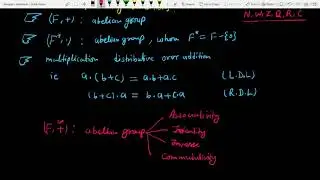 N, W, Z, Q, R, C
(F, +) : abelian group
(F*, ·) : abelian group, whom F* = F - {0}
multiplication distributive over addition
ie a.(b+c) = a.b+a.c (L.D.L)
(b+c).a = b.a+c.a (R.D.L)
(F, +) : abelian group
Associativity
Identity
Inverse
Commutativity